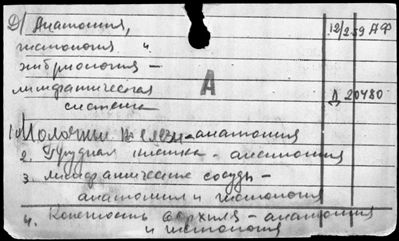 Д/ Анатомия, 12/2.59 АФ
гистология и
эмбриология —
лимфатическая Д 20480
система
А
1. Молочная железа - анатомия
2. Грудная клетка - анатомия
3. лимфатические сосуды -
анатомия и гистология
4. Конечность верхняя - анатомия
и гистология